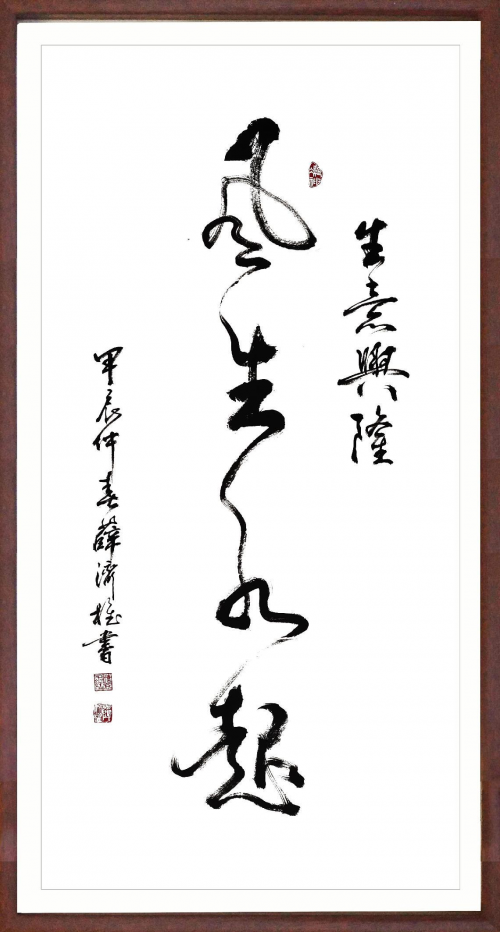 生意興隆
風生水起
甲辰仲春薛濟書